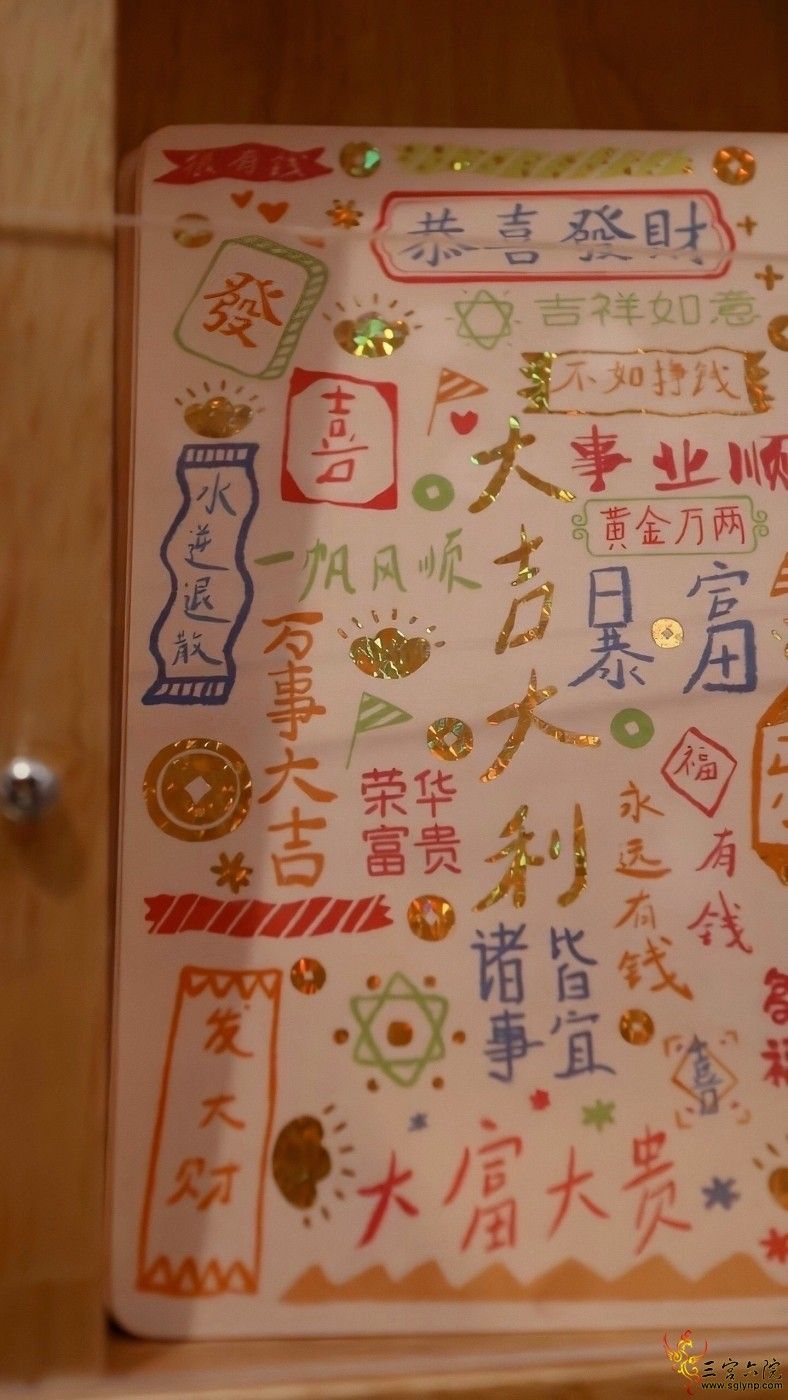 很有钱
恭喜發財
發
吉祥如意
不如挣钱
喜
事业顺
黄金万两
大吉大利
水逆退散
一帆风顺
暴富
万事大吉
福
荣华
富贵
永远有钱
有钱
诸事皆宜
发大财
喜
福
大富大贵
三宫六院
www.sglynp.com